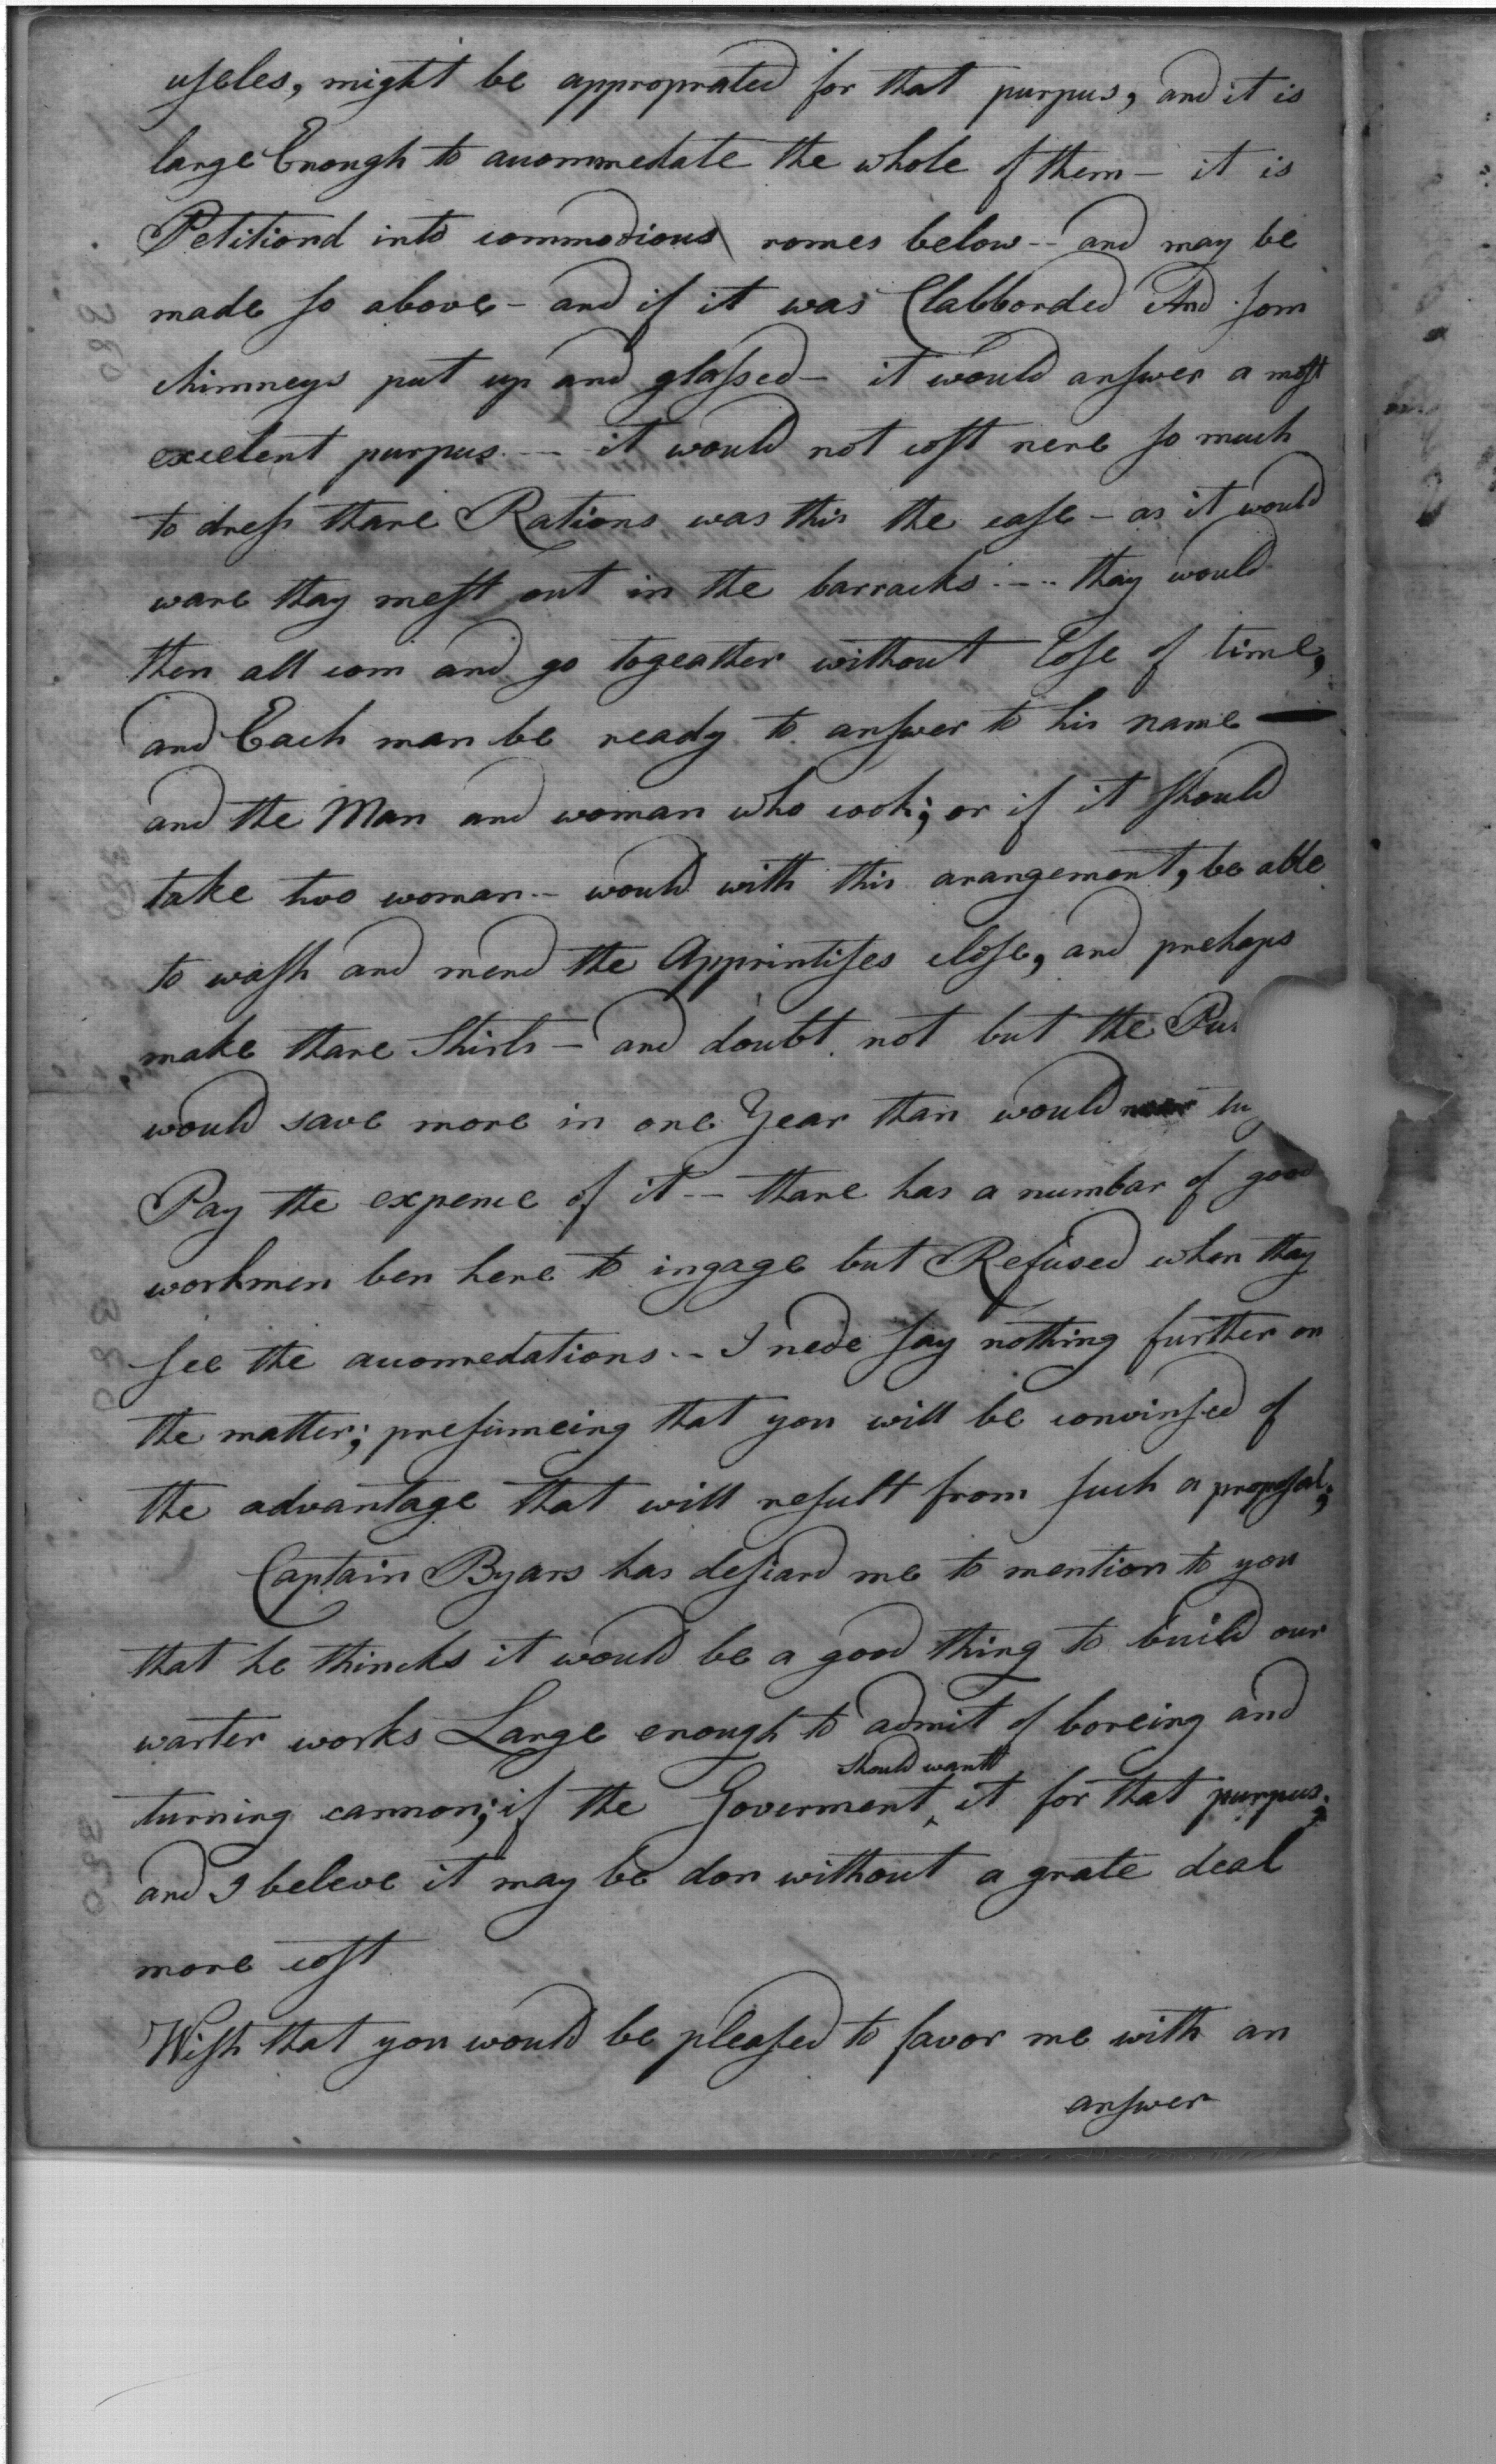 useles, might be approprated for that purpus, and it is
large Enough to auommedate the whole of them – it is
Petitiond into commodious romes below -- and may be
made so above – and if it was Clabborded And som
chimneys put up and glassed – it would answer a most
excelent purpus. -- it would not cost nere so much
to dress thare Rations was this the case – as it would
ware thay mest out in the barracks. --- thay would
then all com and go togeather without Lose of time,
and Each man be ready to answer to his name —
and the Man and woman who cook; or if it should
take two woman -- would with this arangement, be able
to wash and mend the Apprintises close, and prehaps
make thare Shirts – and doubt not but the
would save more in one Year than would
Pay the expence of it -- thare has a numbar of good
workmen ben here to ingage but Refused when thay
see the auomedations -- I nede say nothing further on
the matter; presumeing that you will be convinsed of
the advantage that will result from such a proposal;
Captain Byars has desiard me to mention to you
that he thincks it would be a good thing to build our
warter works Large enough to admit of boreing and
should wantt
turning cannon; if the Goverment ‸ it for that purpus;
and I beleve it may be don without a grate deal
more cost
Wish that you would be pleased to favor me with an
answer